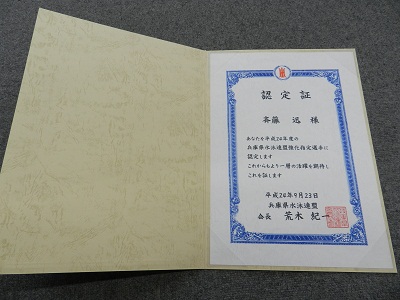 認定証
斉藤 迅 様
あなたを平成24年度の
兵庫県水泳連盟強化指定選手に
認定します
これからもより一層の活躍を期待し
これを証します
平成24年9月23日
兵庫県水泳連盟
会長 荒木紀一